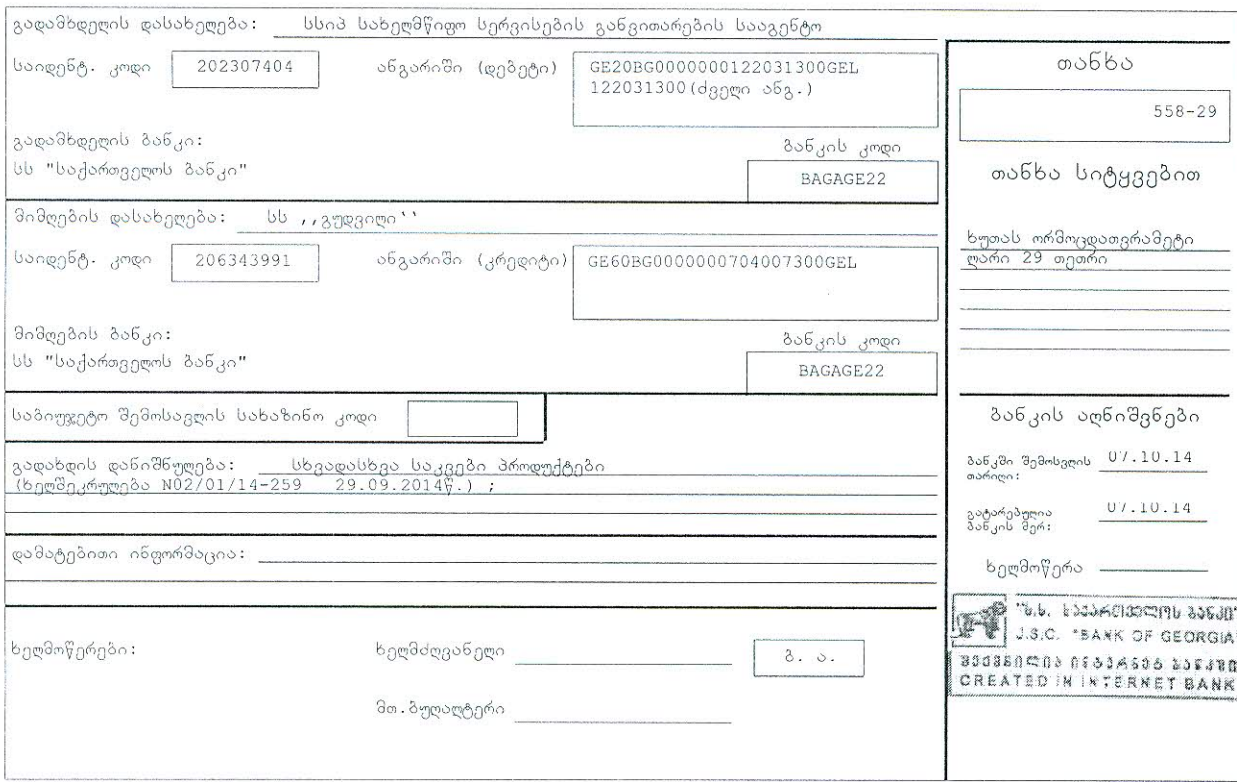 გადამხდელის დასახელება: სსიპ სახელმწიფო სერვისების განვითარების სააგენტო
საიდენტ. კოდი 202307404 ანგარიში (დებეტი) GE20BG0000000122031300GEL
122031300(ძველი ანგ.)
გადამხდელის ბანკი: ბანკის კოდი
სს "საქართველოს ბანკი" BAGAGE22
მიმღების დასახელება: სს ,,გუდვილი''
საიდენტ. კოდი 206343991 ანგარიში (კრედიტი) GE60BG0000000704007300GEL
მიმღების ბანკი: ბანკის კოდი
სს "საქართველოს ბანკი" BAGAGE22
საბიუჯეტო შემოსავლის სახაზინო კოდი
გადახდის დანიშნულება: სხვადასხვა საკვები პროდუქტები
(ხელშეკრულება N02/01/14-259 29.09.2014წ.) ;
დამატებითი ინფორმაცია:
ხელმოწერები: ხელმძღვანელი ბ. ა.
მთ.ბუღალტერი
თანხა
558-29
თანხა სიტყვებით
ხუთას ორმოცდათვრამეტი
ლარი 29 თეთრი
ბანკის აღნიშვნები
ბანკში შემოსვლის 07.10.14
თარიღი:
გატარებულია 07.10.14
ბანკის მერ:
ხელმოწერა
"ს.ს. საქართველოს ბანკი"
J.S.C. "BANK OF GEORGIA"
შექმნილია ინტერნეტ ბანკში
CREATED IN INTERNET BANK